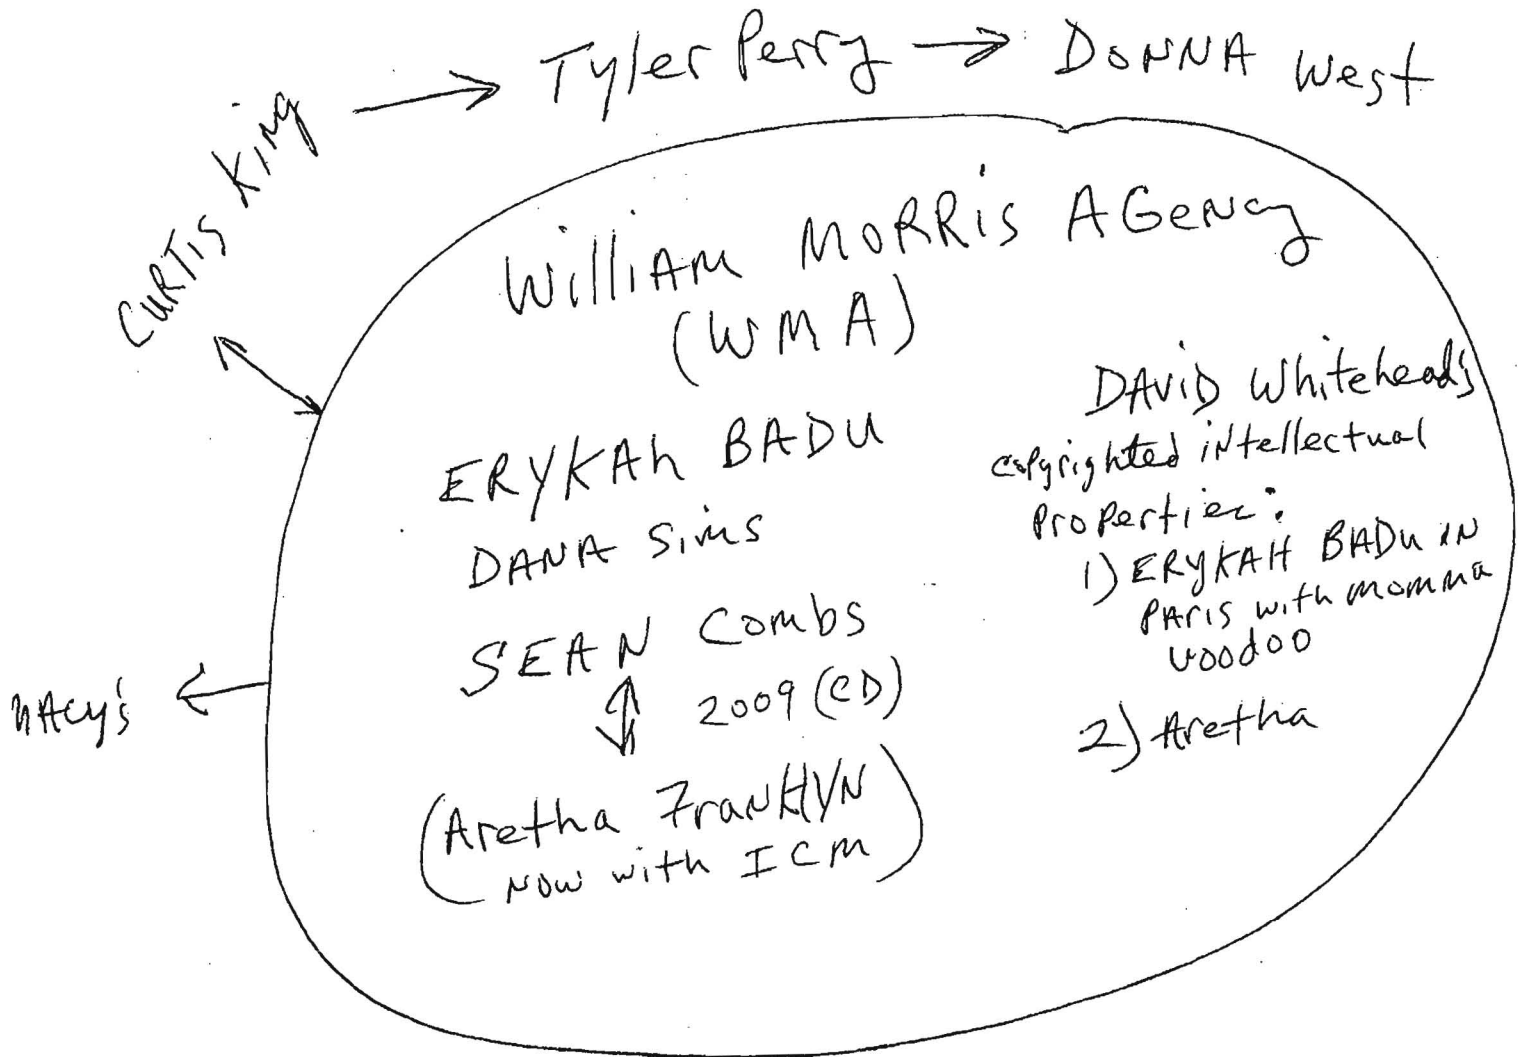 Tyler Perry → DONNA West
CURTIS King
William MORRIS AGENCY
(WMA)
ERYKAh BADU
DANA Sims
SEAN Combs
2009 (CD)
(Aretha FranKlYN
NOW with ICM)
DAViD Whitehead's
copyrighted intellectual
Properties:
1) ERYKAH BADU IN
PARIS with momma
voodoo
2) Aretha
MACY's